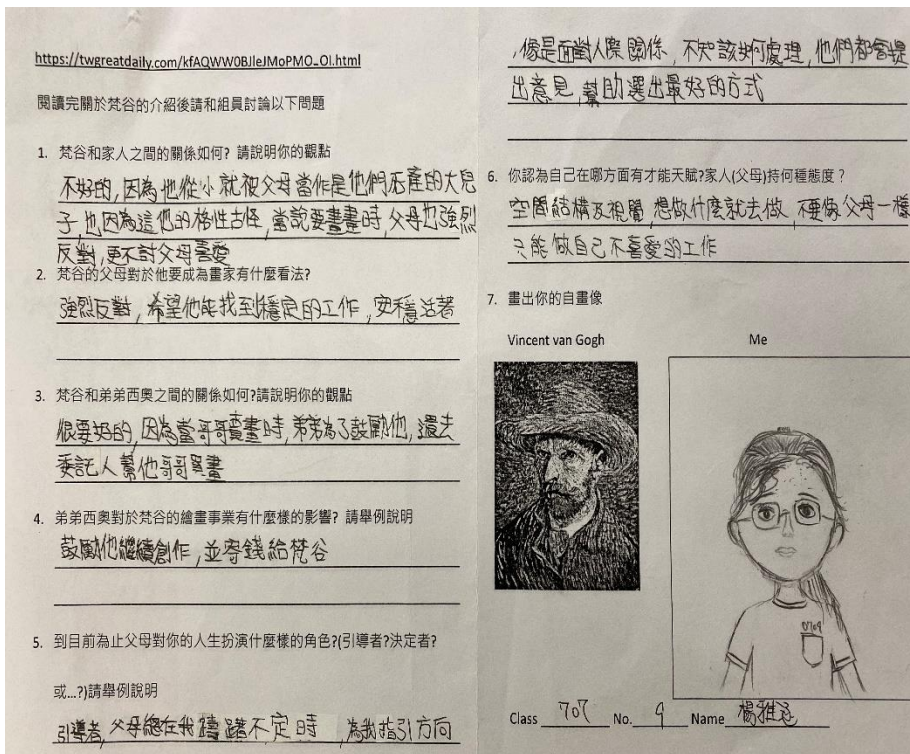 https://twgreatdaily.com/kfAQWW0BJleJMoPMO_OI.html
閱讀完關於梵谷的介紹後請和組員討論以下問題
1. 梵谷和家人之間的關係如何? 請說明你的觀點
不好的,因為他從小就被父母當作是他們死產的大兒
子,也因為這他的格性古怪,當說要畫畫時,父母也強烈
反對,更不討父母喜愛
2. 梵谷的父母對於他要成為畫家有什麼看法?
強烈反對,希望他能找到穩定的工作,安穩活著
3. 梵谷和弟弟西奧之間的關係如何?請說明你的觀點
很要好的,因為當哥哥賣畫時,弟弟為了鼓勵他,還去
委託人幫他哥哥買畫
4. 弟弟西奧對於梵谷的繪畫事業有什麼樣的影響? 請舉例說明
鼓勵他繼續創作,並寄錢給梵谷
5. 到目前為止父母對你的人生扮演什麼樣的角色?(引導者?決定者?
或...?)請舉例說明
引導者,父母總在我躊躇不定時 ,為我指引方向
,像是面對人際關係,不知該如何處理,他們都會提
出意見,幫助選出最好的方式
6. 你認為自己在哪方面有才能天賦?家人(父母)持何種態度?
空間結構及視覺,想做什麼就去做,不要像父母一樣
只能做自己不喜愛的工作
7. 畫出你的自畫像
Vincent van Gogh Me
Class 707 No. 9 Name 楊雅